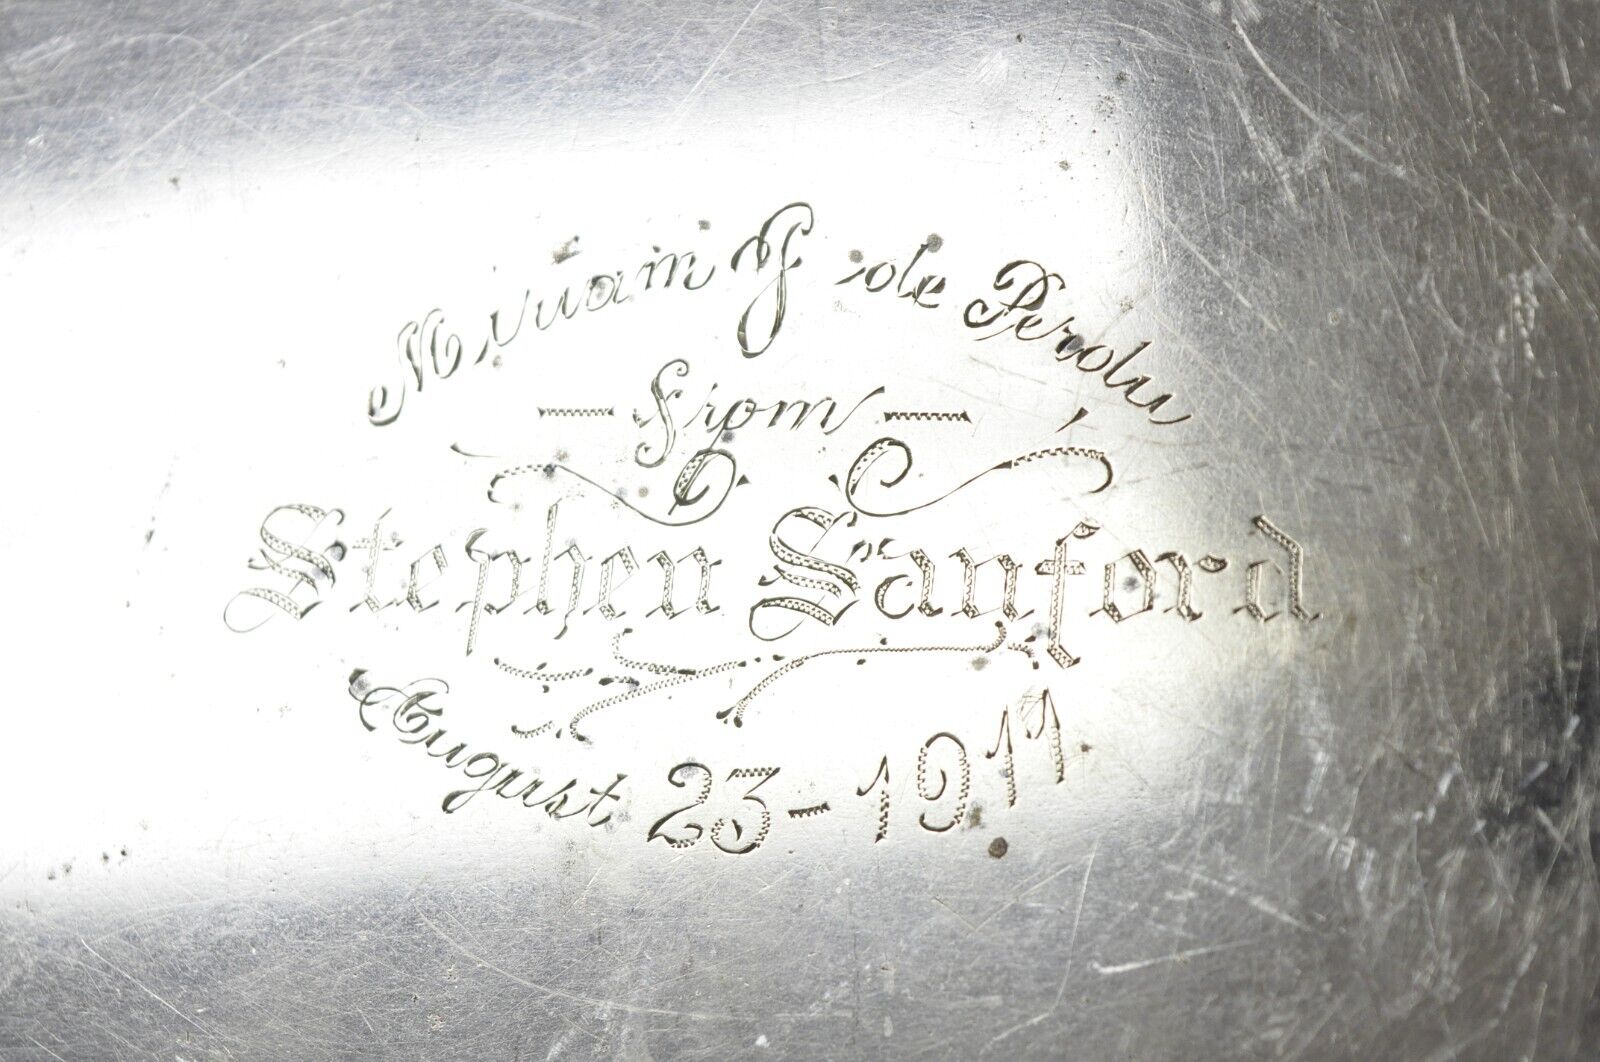 Miriam J de
from
Stephen Sanford
August 23-1911